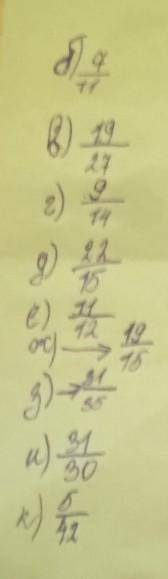 б) 7/11
в) 19/27
г) 9/14
д) 22/15
е) 11/12
ж) → 19/15
з) → 31/35
и) 31/30
к) 5/42